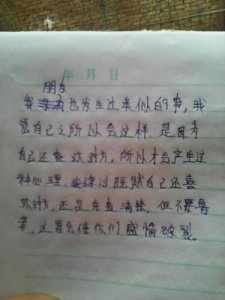 年 月 日
朋友
我也发生过类似的事,我
觉自己之所以会这样,是因为
自己还喜欢对方,所以才会产生这
种心理,既然自己还喜
欢对方,还是先查清楚,但不要
,这要会使你们感情破裂。